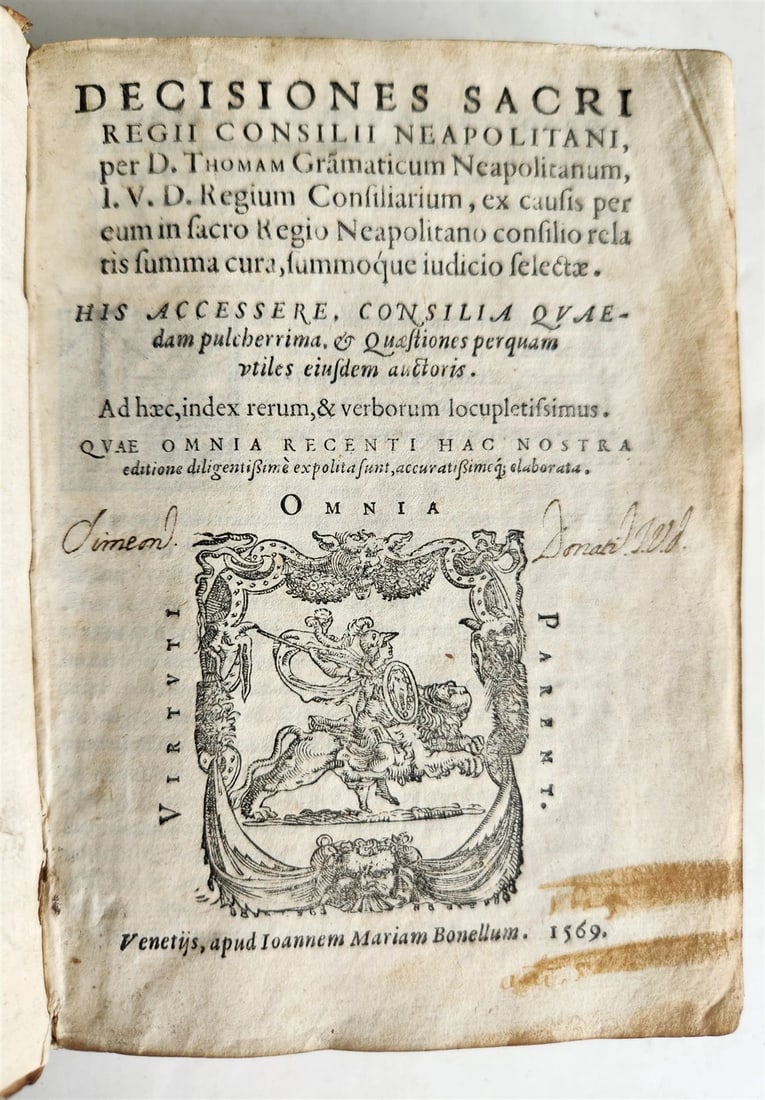 DECISIONES SACRI
REGII CONSILII NEAPOLITANI,
per D. THOMAM Grãmaticum Neapolitanum,
I. V. D. Regium Conſiliarium, ex cauſis per
eum in ſacro Regio Neapolitano conſilio rela
tis ſumma cura, ſummoq́ue iudicio ſelectæ.
HIS ACCESSERE, CONSILIA QVAE-
dam pulcherrima, & Quæſtiones perquam
vtiles eiuſdem auctoris.
Ad hæc, index rerum, & verborum locupletiſsimus.
QVAE OMNIA RECENTI HAC NOSTRA
editione diligentiſsimè expolita ſunt, accuratiſsimeq́; elaborata.
OMNIA
Simeon. Donati J.V.d.
VIRTVTI
PARENT.
Venetijs, apud Ioannem Mariam Bonellum. 1569.